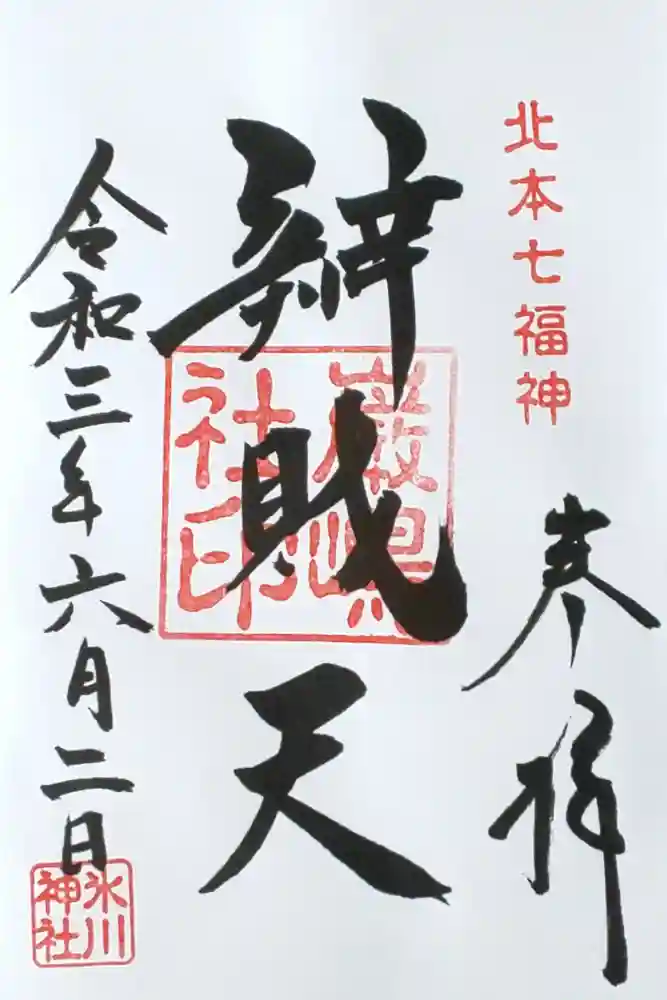 北本七福神
奉拝
辨財天
嚴島
社印
令和三年六月二日
氷川
神社